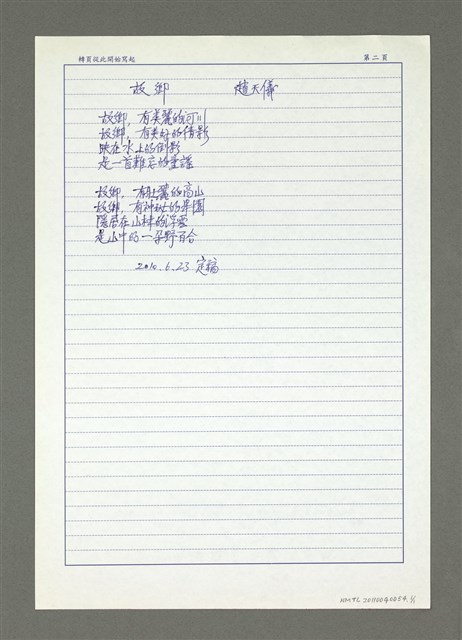 轉頁從此開始寫起
第二頁
故鄉 趙天儀
故鄉，有美麗的河川
故鄉，有美好的倩影
映在水上的倒影
是一首難忘的童謠
故鄉，有壯麗的高山
故鄉，有神秘的果園
隱居在山林的浮雲
是山中的一朵野百合
2010.6.23 定稿
NMTL 20110040054